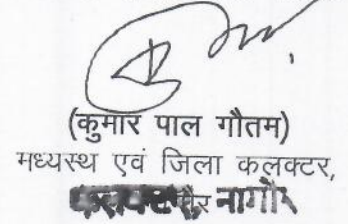 (कुमार पाल गौतम)
मध्यस्थ एवं जिला कलक्टर,
नागौर